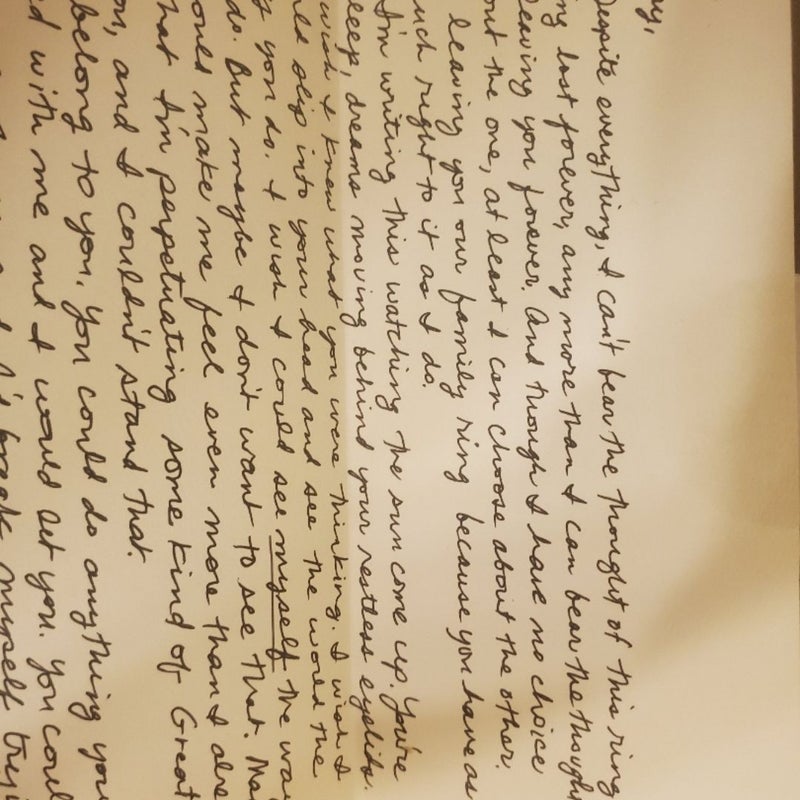 ay,
Despite everything, I can't bear the thought of this ring
ng lost forever, any more than I can bear the though
leaving you forever. And though I have no choice
out the one, at least I can choose about the other.
leaving you our family ring because you have as
uch right to it as I do.
I'm writing this watching the sun come up. You're
leep, dreams moving behind your restless eyelids.
wish I knew what you were thinking. I wish I
uld slip into your head and see the world the
y you do. I wish I could see myself the way
do. But maybe I don't want to see that. Ma
ould make me feel even more than I alre
hat I'm perpetuating some kind of Great
on, and I couldn't stand that.
belong to you. You could do anything you
d with me and I would let you. You coul
I'd break myself tryi